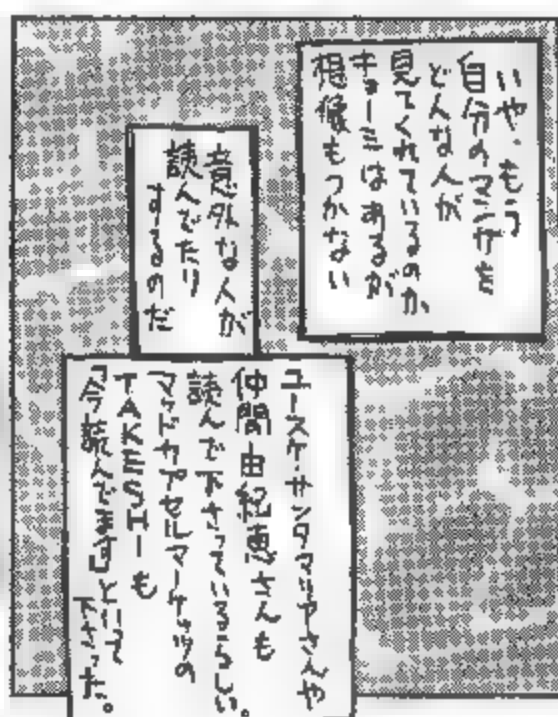 いや、もう
自分のマンガを
どんな人が
見てくれているのか
キョーミはあるが
想像もつかない
意外な人が
読んでたり
するのだ
ユースケ・サンタマリヤさんや
仲間由紀恵さんも
読んで下さっているらしい。
マッドカプセルマーケッツの
TAKESHIも
「今読んでます」といって
下さった。